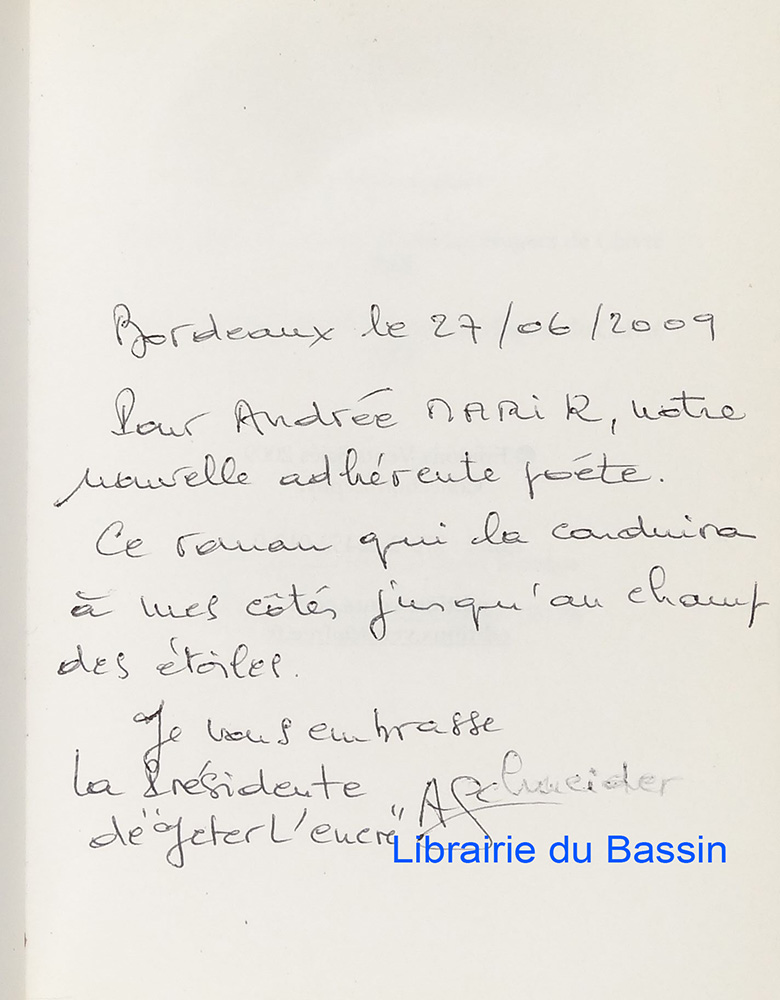 Bordeaux le 27/06/2009
Pour Andrée MARiK, notre
nouvelle adhérente poéte.
Ce roman qui la conduira
à mes côtés jusqu'au champ
des étoiles.
Je vous embrasse
La Présidente ASchneider
de "Jeter L'encre"
Librairie du Bassin